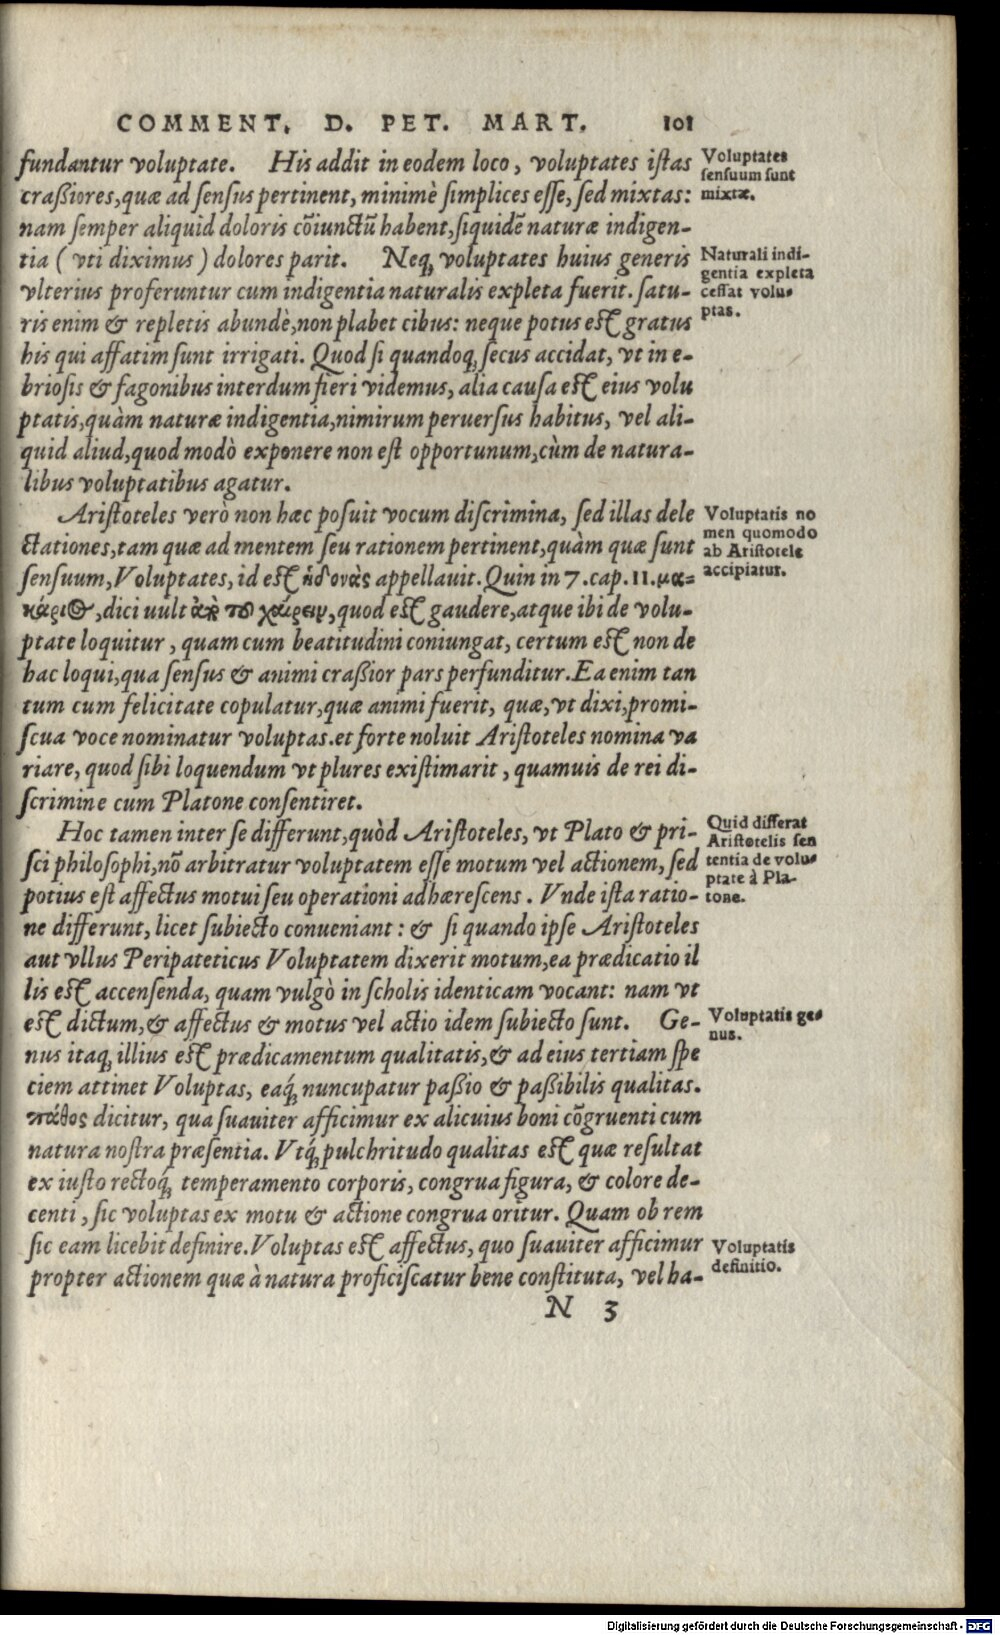 COMMENT. D. PET. MART. 101
fundantur voluptate. His addit in eodem loco, voluptates istas
craßiores, quæ ad sensus pertinent, minimè simplices esse, sed mixtas:
nam semper aliquid doloris cõiunctũ habent, siquidẽ naturæ indigen-
tia (vti diximus) dolores parit. Neq; voluptates huius generis
vlterius proferuntur cum indigentia naturalis expleta fuerit. satu-
ris enim & repletis abundè, non plabet cibus: neque potus est gratus
his qui affatim sunt irrigati. Quod si quandoq; secus accidat, vt in e-
briosis & fagonibus interdum fieri videmus, alia causa est eius volu
ptatis, quàm naturæ indigentia, nimirum peruersus habitus, vel ali-
quid aliud, quod modò exponere non est opportunum, cùm de natura-
libus voluptatibus agatur.
Aristoteles verò non hæc posuit vocum discrimina, sed illas dele
ctationes, tam quæ ad mentem seu rationem pertinent, quàm quæ sunt
sensuum, Voluptates, id est ἡδονὰς appellauit. Quin in 7. cap. 11. μα-
κάριος, dici uult ἀπὸ τοῦ χαίρειν, quod est gaudere, atque ibi de volu-
ptate loquitur, quam cum beatitudini coniungat, certum est non de
hac loqui, qua sensus & animi craßior pars perfunditur. Ea enim tan
tum cum felicitate copulatur, quæ animi fuerit, quæ, vt dixi, promi-
scua voce nominatur voluptas. et forte noluit Aristoteles nomina va
riare, quod sibi loquendum vt plures existimarit, quamuis de rei di-
scrimine cum Platone consentiret.
Hoc tamen inter se differunt, quòd Aristoteles, vt Plato & pri-
sci philosophi, nõ arbitratur voluptatem esse motum vel actionem, sed
potius est affectus motui seu operationi adhærescens. Vnde ista ratio-
ne differunt, licet subiecto conueniant: & si quando ipse Aristoteles
aut vllus Peripateticus Voluptatem dixerit motum, ea prædicatio il
lis est accensenda, quam vulgò in scholis identicam vocant: nam vt
est dictum, & affectus & motus vel actio idem subiecto sunt. Ge-
nus itaq; illius est prædicamentum qualitatis, & ad eius tertiam spe
ciem attinet Voluptas, eaq́; nuncupatur paßio & paßibilis qualitas.
πάθος dicitur, qua suauiter afficimur ex alicuius boni cõgruenti cum
natura nostra præsentia. Vtq́; pulchritudo qualitas est quæ resultat
ex iusto rectoq́; temperamento corporis, congrua figura, & colore de-
centi, sic voluptas ex motu & actione congrua oritur. Quam ob rem
sic eam licebit definire. Voluptas est affectus, quo suauiter afficimur
propter actionem quæ à natura proficiscatur bene constituta, vel ha-
N 3
Voluptates
sensuum sunt
mixtæ.
Naturali indi-
gentia expleta
cessat volu-
ptas.
Voluptatis no
men quomodo
ab Aristotele
accipiatur.
Quid differat
Aristotelis sen
tentia de volu-
ptate à Pla-
tone.
Voluptatis ge-
nus.
Voluptatis
definitio.
Digitalisierung gefördert durch die Deutsche Forschungsgemeinschaft - DFG